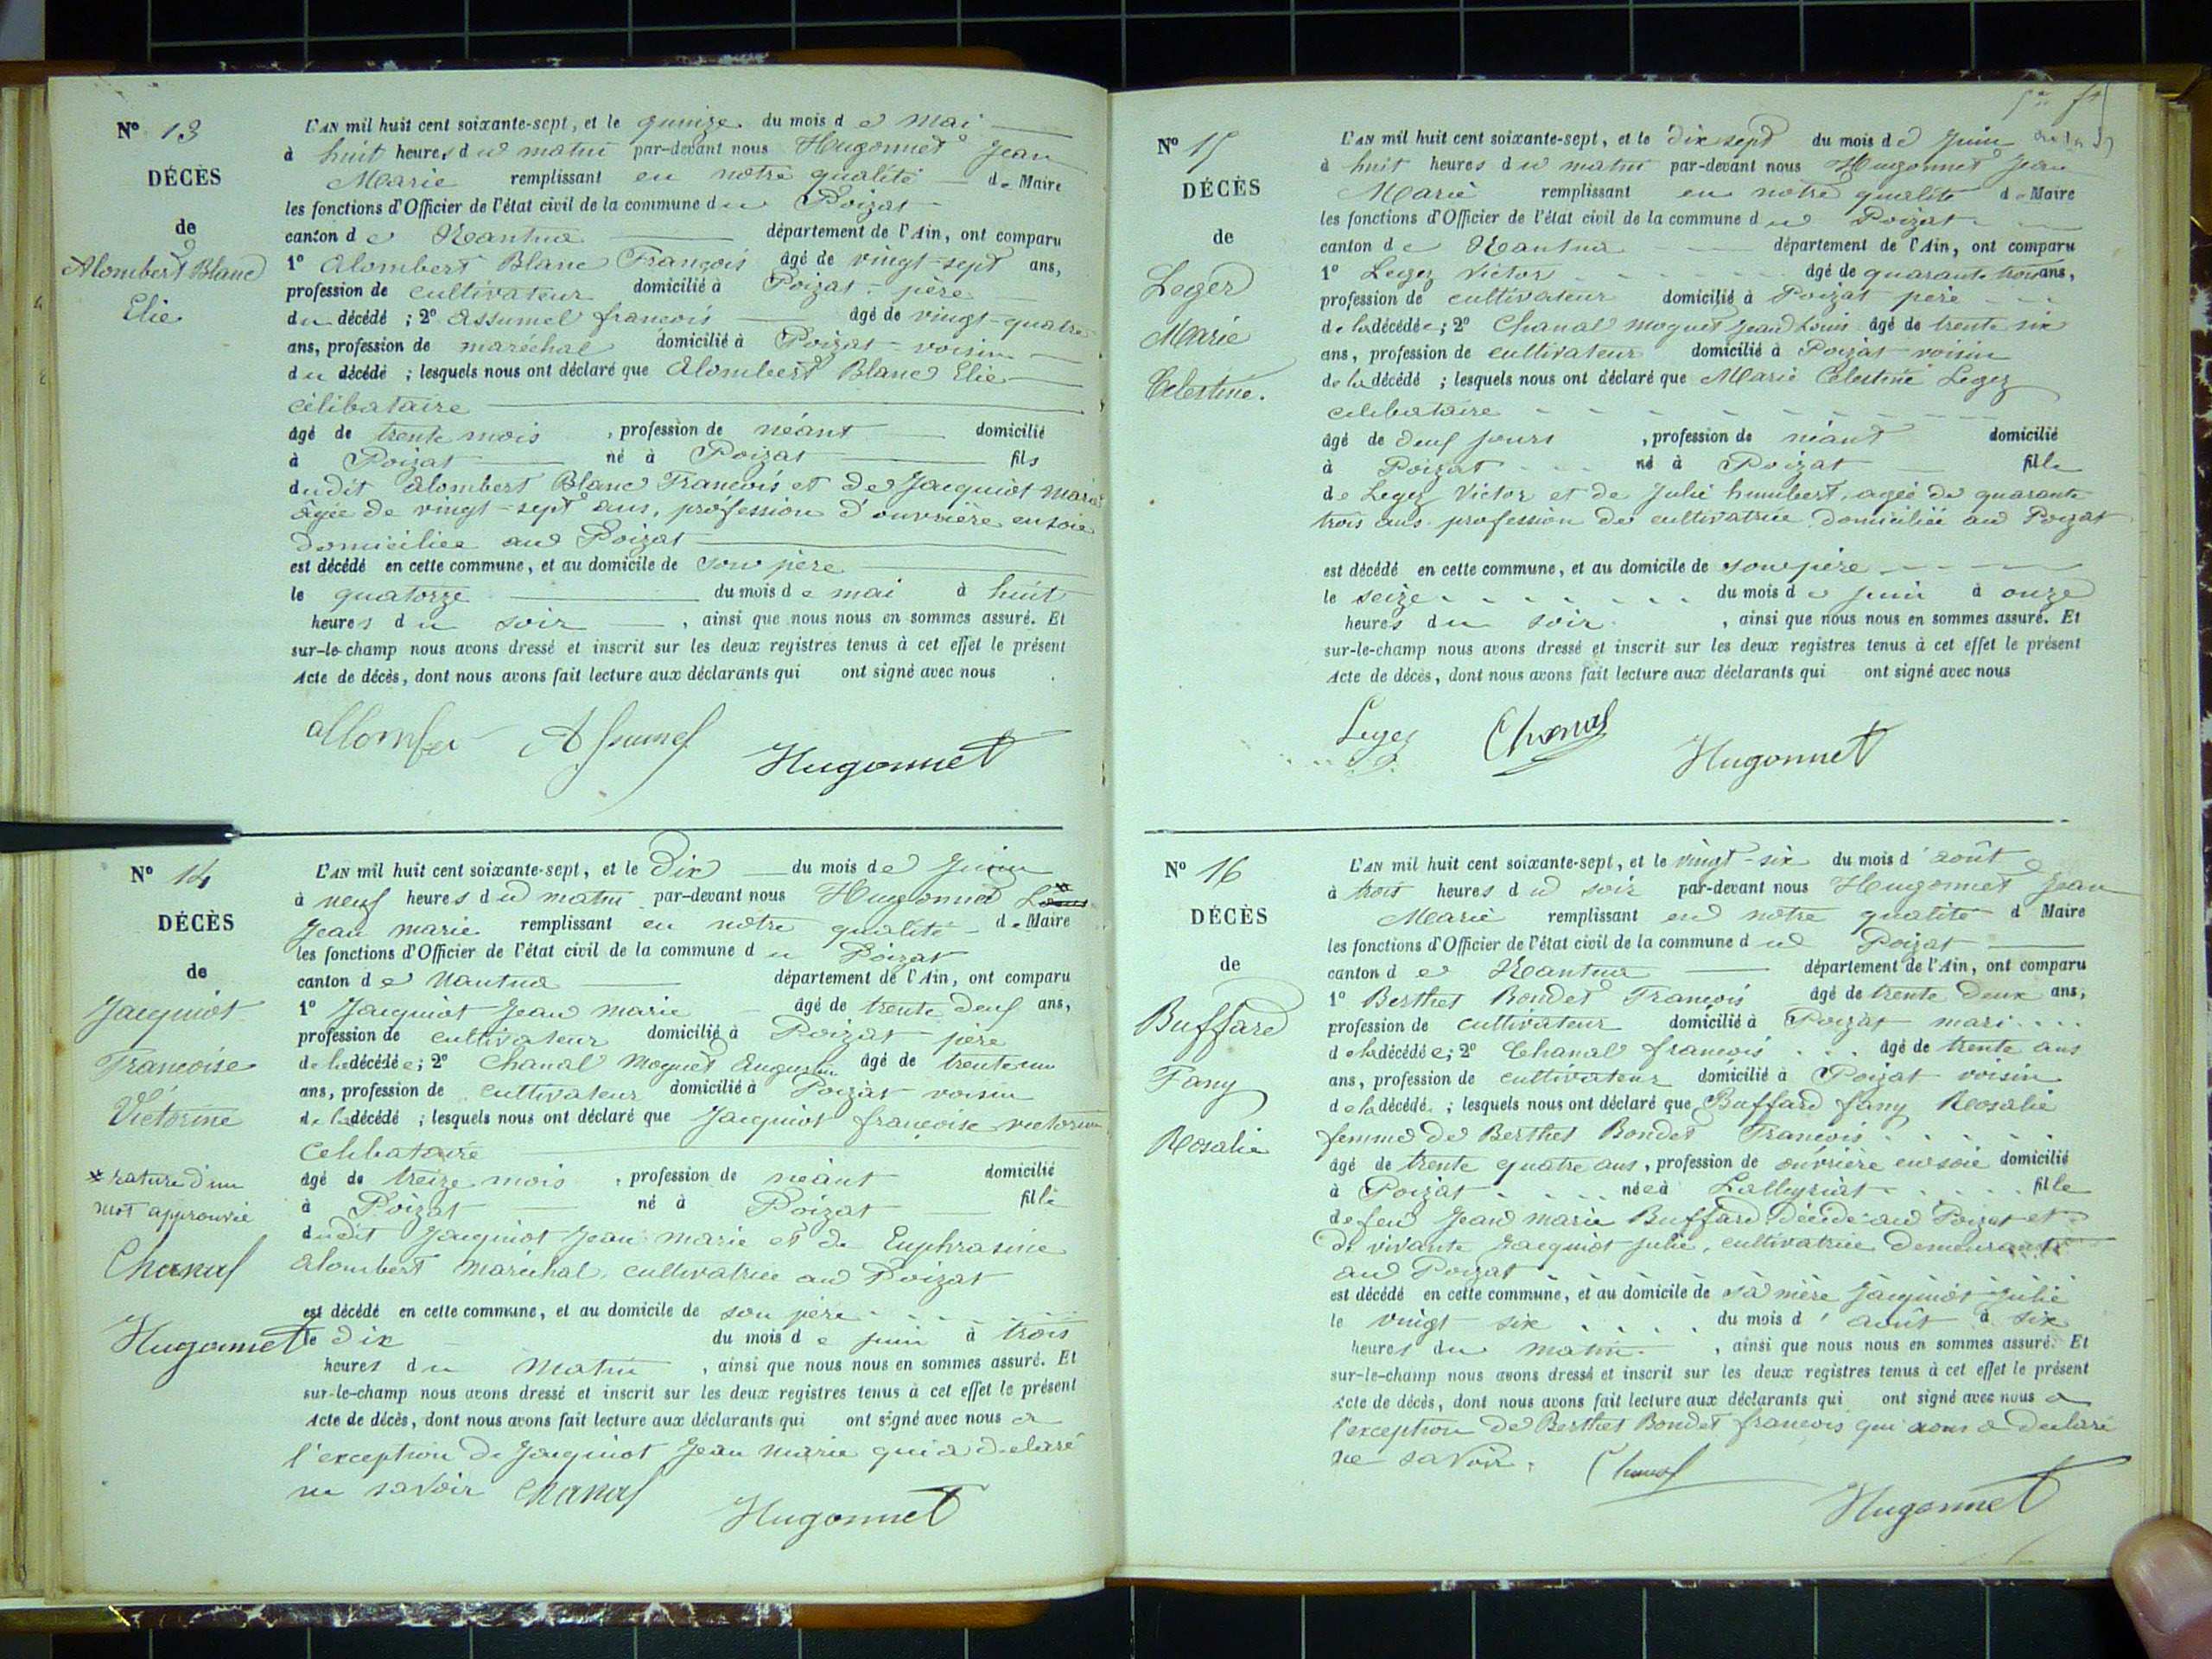 N° 13
DÉCÈS
de
Alombert Blanc
Elie
L'AN mil huit cent soixante-sept, et le quinze du mois de Mai
à huit heures du matin par-devant nous Hugonnet Jean
Marie remplissant en notre qualité de Maire
les fonctions d'Officier de l'état civil de la commune du Poizat
canton de Nantua département de l'Ain, ont comparu
1° Alombert Blanc François âgé de vingt-sept ans,
profession de cultivateur domicilié à Poizat père
du décédé ; 2° Assumel françois âgé de vingt-quatre
ans, profession de maréchal domicilié à Poizat voisin
du décédé ; lesquels nous ont déclaré que Alombert Blanc Elie
célibataire
âgé de trente mois, profession de néant domicilié
à Poizat né à Poizat fils
dudit Alombert Blanc François et de Jacquiot Marie
âgée de vingt-sept ans, profession d'ouvrière en soie
domiciliée au Poizat
est décédé en cette commune, et au domicile de son père
le quatorze du mois de mai à huit
heures du soir, ainsi que nous nous en sommes assuré. Et
sur-le-champ nous avons dressé et inscrit sur les deux registres tenus à cet effet le présent
Acte de décès, dont nous avons fait lecture aux déclarants qui ont signé avec nous
Assumel Hugonnet
N° 14
DÉCÈS
de
Jacquiot
Françoise
Victorine
* rature d'un
mot approuvée
Chanal
Hugonnet
L'AN mil huit cent soixante-sept, et le Dix du mois de Juin
à neuf heures du matin par-devant nous Hugonnet
Jean marie remplissant en notre qualité de Maire
les fonctions d'Officier de l'état civil de la commune du Poizat
canton de Nantua département de l'Ain, ont comparu
1° Jacquiot Jean marie âgé de trente deux ans,
profession de cultivateur domicilié à Poizat père
de la décédée; 2° Chanal Moguet Augustin âgé de trente un
ans, profession de cultivateur domicilié à Poizat voisin
de la décédé ; lesquels nous ont déclaré que Jacquiot françoise victorine
Celibataire
âgé de treize mois, profession de néant domicilié
à Poizat né à Poizat fille
dudit Jacquiot Jean marie et de Euphrasine
alombert maréchal, cultivatrice au Poizat
est décédé en cette commune, et au domicile de son père
le dix du mois de juin à trois
heures du Matin, ainsi que nous nous en sommes assuré. Et
sur-le-champ nous avons dressé et inscrit sur les deux registres tenus à cet effet le présent
Acte de décès, dont nous avons fait lecture aux déclarants qui ont signé avec nous a
l'exception de Jacquiot Jean Marie qui a déclaré
ne savoir Chanal
Hugonnet
N° 15
DÉCÈS
de
Leger
Marie
Celestine.
L'AN mil huit cent soixante-sept, et le dix sept du mois de Juin
à huit heures du matin par-devant nous Hugonnet Jean
Marie remplissant en notre qualité de Maire
les fonctions d'Officier de l'état civil de la commune du Poizat
canton de Nantua département de l'Ain, ont comparu
1° Leger Victor âgé de quarante trois ans,
profession de cultivateur domicilié à Poizat père
de la décédée; 2° Chanal moguet Jean Louis âgé de trente six
ans, profession de cultivateur domicilié à Poizat voisin
de la décédé ; lesquels nous ont déclaré que Marie Celestine Leger
celibataire
âgé de deux jours, profession de néant domicilié
à Poizat né à Poizat fille
de Leger Victor et de Julie humbert, agée de quarante
trois ans profession de cultivatrice domiciliée au Poizat
est décédé en cette commune, et au domicile de son père
le seize du mois de juin à onze
heures du soir, ainsi que nous nous en sommes assuré. Et
sur-le-champ nous avons dressé et inscrit sur les deux registres tenus à cet effet le présent
Acte de décès, dont nous avons fait lecture aux déclarants qui ont signé avec nous
Leger Chanal Hugonnet
N° 16
DÉCÈS
de
Buffard
Fany
Rosalie
L'AN mil huit cent soixante-sept, et le vingt-six du mois d'août
à trois heures du soir par-devant nous Hugonnet Jean
Marie remplissant en notre qualité d Maire
les fonctions d'Officier de l'état civil de la commune du Poizat
canton de Nantua département de l'Ain, ont comparu
1° Berthet Bondet François âgé de trente deux ans,
profession de cultivateur domicilié à Poizat mari
de la décédée; 2° Chanal françois âgé de trente ans
ans, profession de cultivateur domicilié à Poizat voisin
de la décédé ; lesquels nous ont déclaré que Buffard fany Rosalie
femme de Berthet Bondet François
âgé de trente quatre ans, profession de ouvrière en soie domicilié
à Poizat née à Lalleyriat fille
de feu Jean marie Buffard décédé au Poizat et
de vivante Jacquiot Julie, cultivatrice demeurante
au Poizat
est décédé en cette commune, et au domicile de sa mère Jacquiot Julie
le vingt six du mois d'août à six
heures du matin, ainsi que nous nous en sommes assuré. Et
sur-le-champ nous avons dressé et inscrit sur les deux registres tenus à cet effet le présent
Acte de décès, dont nous avons fait lecture aux déclarants qui ont signé avec nous a
l'exception de Berthet Bondet françois qui nous a declaré
ne savoir. Chanal
Hugonnet